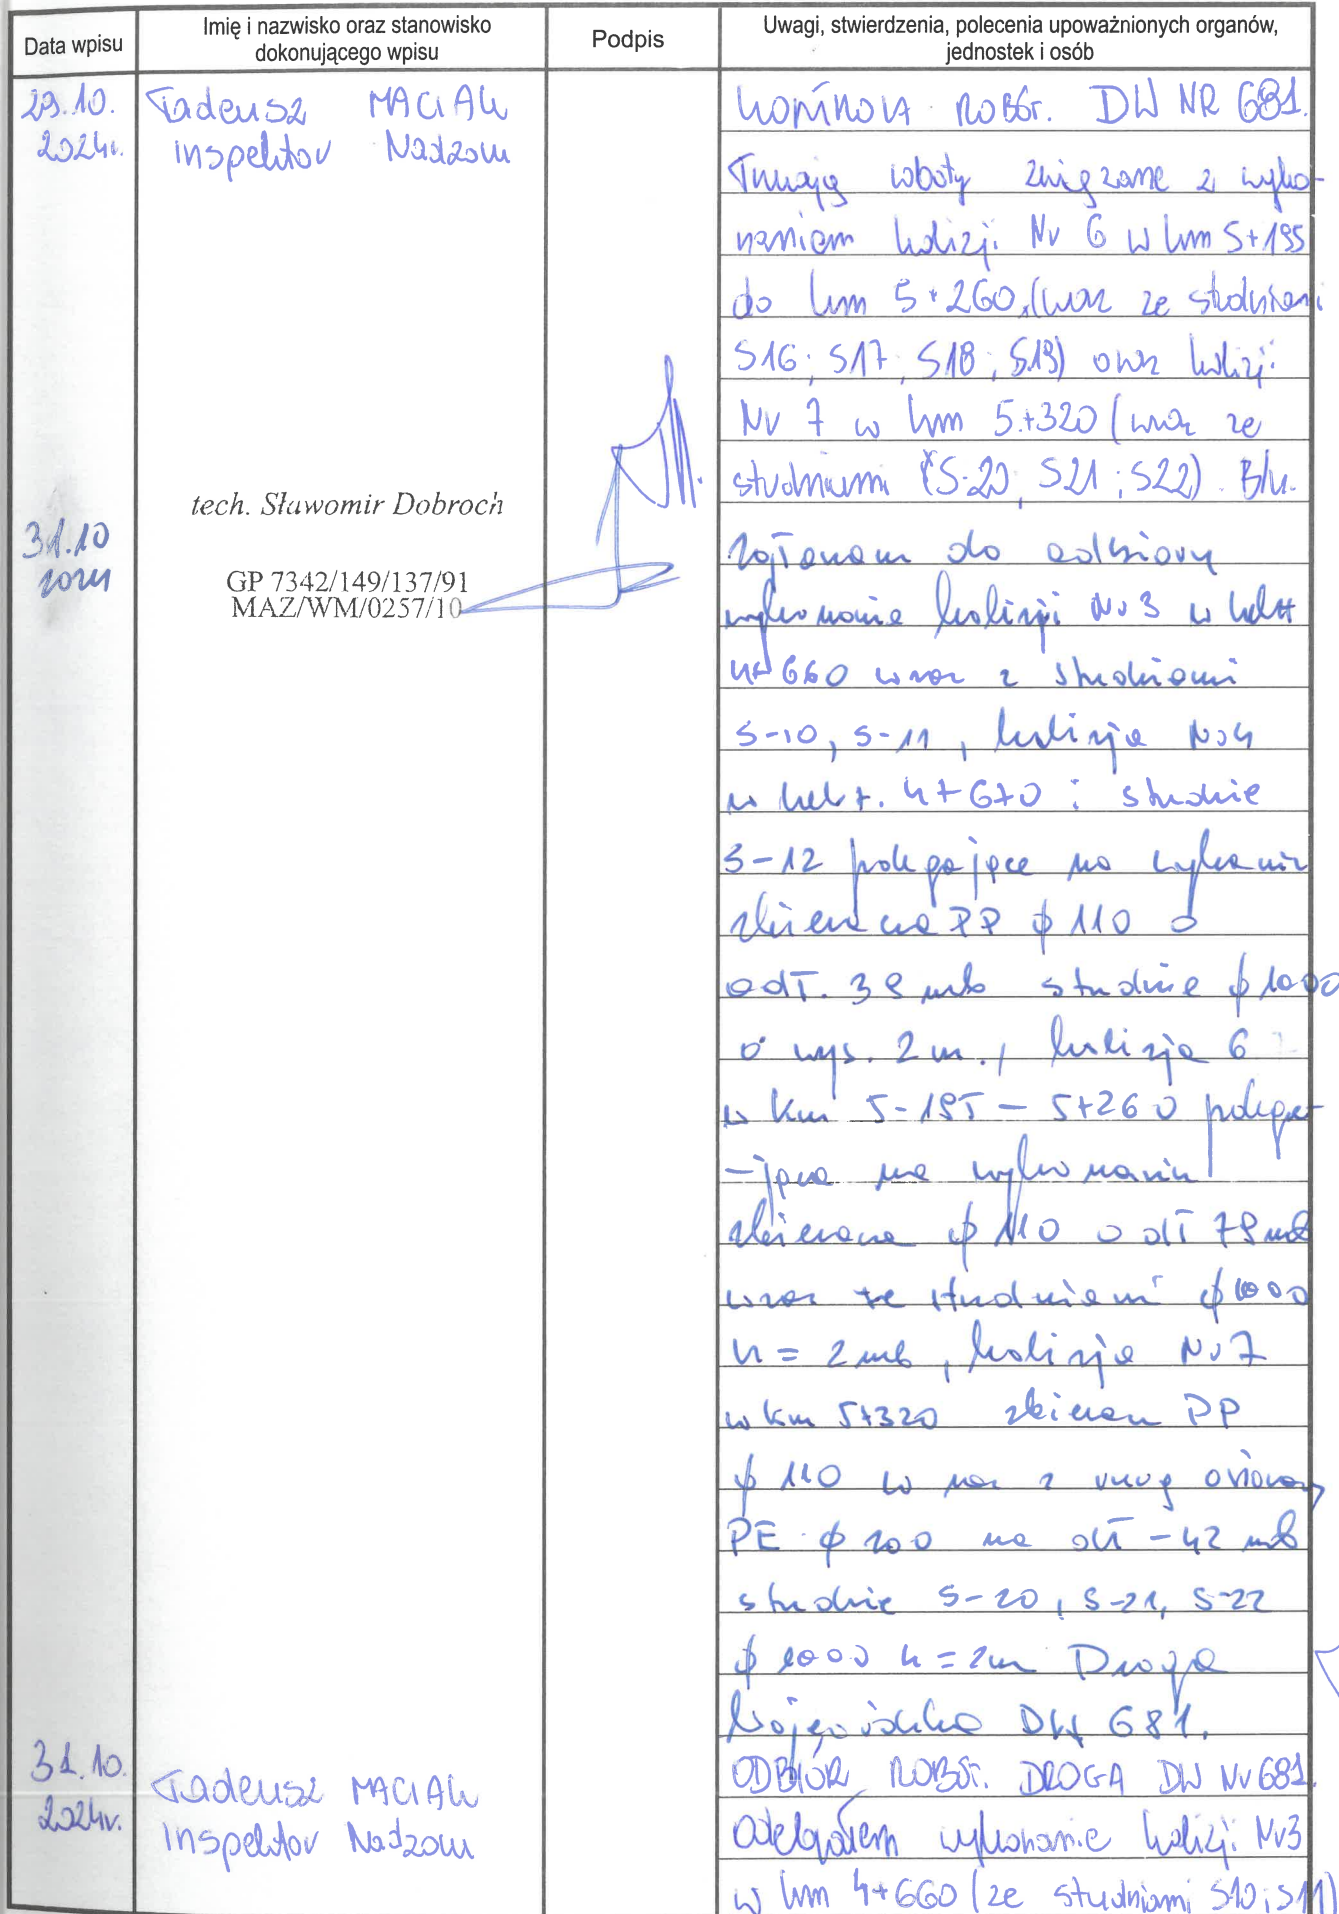 Data wpisu
Imię i nazwisko oraz stanowisko
dokonującego wpisu
Podpis
Uwagi, stwierdzenia, polecenia upoważnionych organów,
jednostek i osób
29.10.
2024r.
Tadeusz MACIAK
Inspektor Nadzoru
KONTROLA ROBÓT. DW NR 681.
Trwają roboty związane z wyko-
naniem kolizji Nr 6 w km 5+195
do km 5+260, (wraz ze studniami
S16; S17; S18; S19) oraz kolizji
Nr 7 w km 5+320 (wraz ze
studniami (S-20, S21; S22)
31.10
2024
tech. Sławomir Dobroch
GP 7342/149/137/91
MAZ/WM/0257/10
do odbioru
wykonanie kolizji Nr 3 w
4+660 wraz z studniami
S-10, S-11, kolizja Nr 4
w 4+670 i studnie
S-12 polegające na wykaniu
PP φ 110 o
odł. 39 mb studnie φ 1000
o wys. 2 m., kolizja 6
w km 5-195 – 5+260 polega-
-jąca na wykonaniu
φ 110 o dł 79 mb
wraz ze studniami φ 1000
h = 2 mb, kolizja Nr 7
w km 5+320 PP
φ 110 wraz z rurą
PE φ 200 na dł – 42 mb
studnie S-20, S-21, S-22
φ 1000 h = 2m Droga
Wojewódzka DW 681.
31.10.
2024r.
Tadeusz MACIAK
Inspektor Nadzoru
ODBIÓR ROBÓT. DROGA DW Nr 681.
Odebrałem wykonanie kolizji Nr3
w km 4+660 (ze studniami S10; S11)